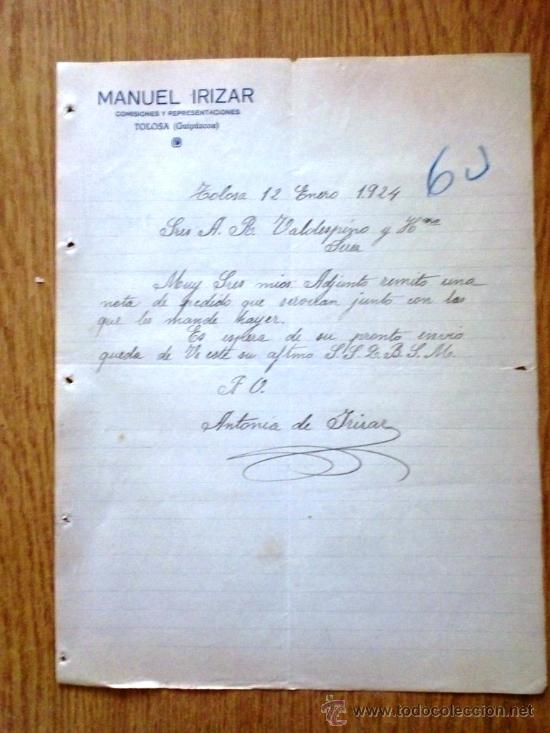 MANUEL IRIZAR
COMISIONES Y REPRESENTACIONES
TOLOSA (Guipúzcoa)
60
Tolosa 12 Enero 1924
Sres A. R. Valdespino y Hno
Muy Sres mios: Adjunto remito una
nota de pedido que serviran junto con las
que les mande hayer.
En espera de su pronto envio
queda de Vs este su aftmo S. S. Q. B. S. M.
Antonia de Irizar
todocoleccion
www.todocoleccion.net